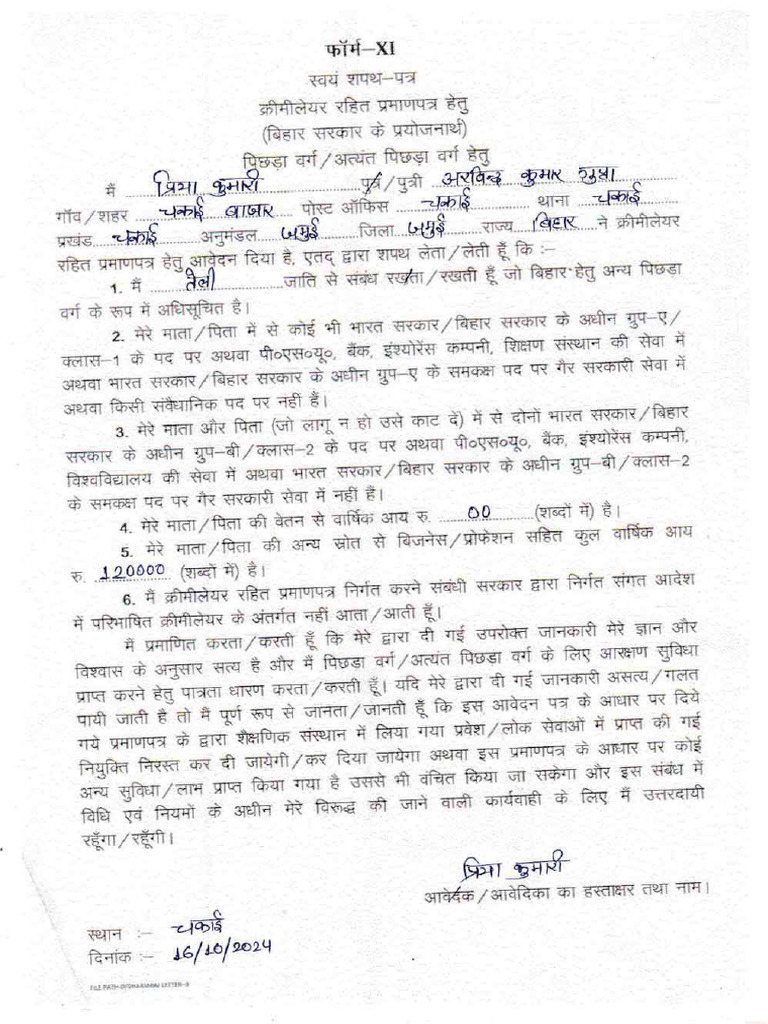 फॉर्म–XI
स्वयं शपथ–पत्र
क्रीमीलेयर रहित प्रमाणपत्र हेतु
(बिहार सरकार के प्रयोजनार्थ)
पिछड़ा वर्ग/अत्यंत पिछड़ा वर्ग हेतु
मैं प्रिया कुमारी पुत्र/पुत्री अरविन्द कुमार गुप्ता
गाँव/शहर चकाई बाजार पोस्ट ऑफिस चकाई थाना चकाई
प्रखंड चकाई अनुमंडल जमुई जिला जमुई राज्य बिहार ने क्रीमीलेयर
रहित प्रमाणपत्र हेतु आवेदन दिया है, एतद् द्वारा शपथ लेता/लेती हूँ कि :–
1. मैं तेली जाति से संबंध रखता/रखती हूँ जो बिहार हेतु अन्य पिछड़ा
वर्ग के रूप में अधिसूचित है।
2. मेरे माता/पिता में से कोई भी भारत सरकार/बिहार सरकार के अधीन ग्रुप–ए/
क्लास–1 के पद पर अथवा पी०एस०यू०, बैंक, इंश्योरेंस कम्पनी, शिक्षण संस्थान की सेवा में
अथवा भारत सरकार/बिहार सरकार के अधीन ग्रुप–ए के समकक्ष पद पर गैर सरकारी सेवा में
अथवा किसी संवैधानिक पद पर नहीं हैं।
3. मेरे माता और पिता (जो लागू न हो उसे काट दें) में से दोनों भारत सरकार/बिहार
सरकार के अधीन ग्रुप–बी/क्लास–2 के पद पर अथवा पी०एस०यू०, बैंक, इंश्योरेंस कम्पनी,
विश्वविद्यालय की सेवा में अथवा भारत सरकार/बिहार सरकार के अधीन ग्रुप–बी/क्लास–2
के समकक्ष पद पर गैर सरकारी सेवा में नहीं हैं।
4. मेरे माता/पिता की वेतन से वार्षिक आय रु. 00 (शब्दों में) है।
5. मेरे माता/पिता की अन्य स्रोत से बिजनेस/प्रोफेशन सहित कुल वार्षिक आय
रु. 120000 (शब्दों में) है।
6. मैं क्रीमीलेयर रहित प्रमाणपत्र निर्गत करने संबंधी सरकार द्वारा निर्गत संगत आदेश
में परिभाषित क्रीमीलेयर के अंतर्गत नहीं आता/आती हूँ।
मैं प्रमाणित करता/करती हूँ कि मेरे द्वारा दी गई उपरोक्त जानकारी मेरे ज्ञान और
विश्वास के अनुसार सत्य है और मैं पिछड़ा वर्ग/अत्यंत पिछड़ा वर्ग के लिए आरक्षण सुविधा
प्राप्त करने हेतु पात्रता धारण करता/करती हूँ। यदि मेरे द्वारा दी गई जानकारी असत्य/गलत
पायी जाती है तो मैं पूर्ण रूप से जानता/जानती हूँ कि इस आवेदन पत्र के आधार पर दिये
गये प्रमाणपत्र के द्वारा शैक्षणिक संस्थान में लिया गया प्रवेश/लोक सेवाओं में प्राप्त की गई
नियुक्ति निरस्त कर दी जायेगी/कर दिया जायेगा अथवा इस प्रमाणपत्र के आधार पर कोई
अन्य सुविधा/लाभ प्राप्त किया गया है उससे भी वंचित किया जा सकेगा और इस संबंध में
विधि एवं नियमों के अधीन मेरे विरूद्ध की जाने वाली कार्यवाही के लिए मैं उत्तरदायी
रहूँगा/रहूँगी।
प्रिया कुमारी
आवेदक/आवेदिका का हस्ताक्षर तथा नाम।
स्थान :– चकाई
दिनांक :– 16/10/2024